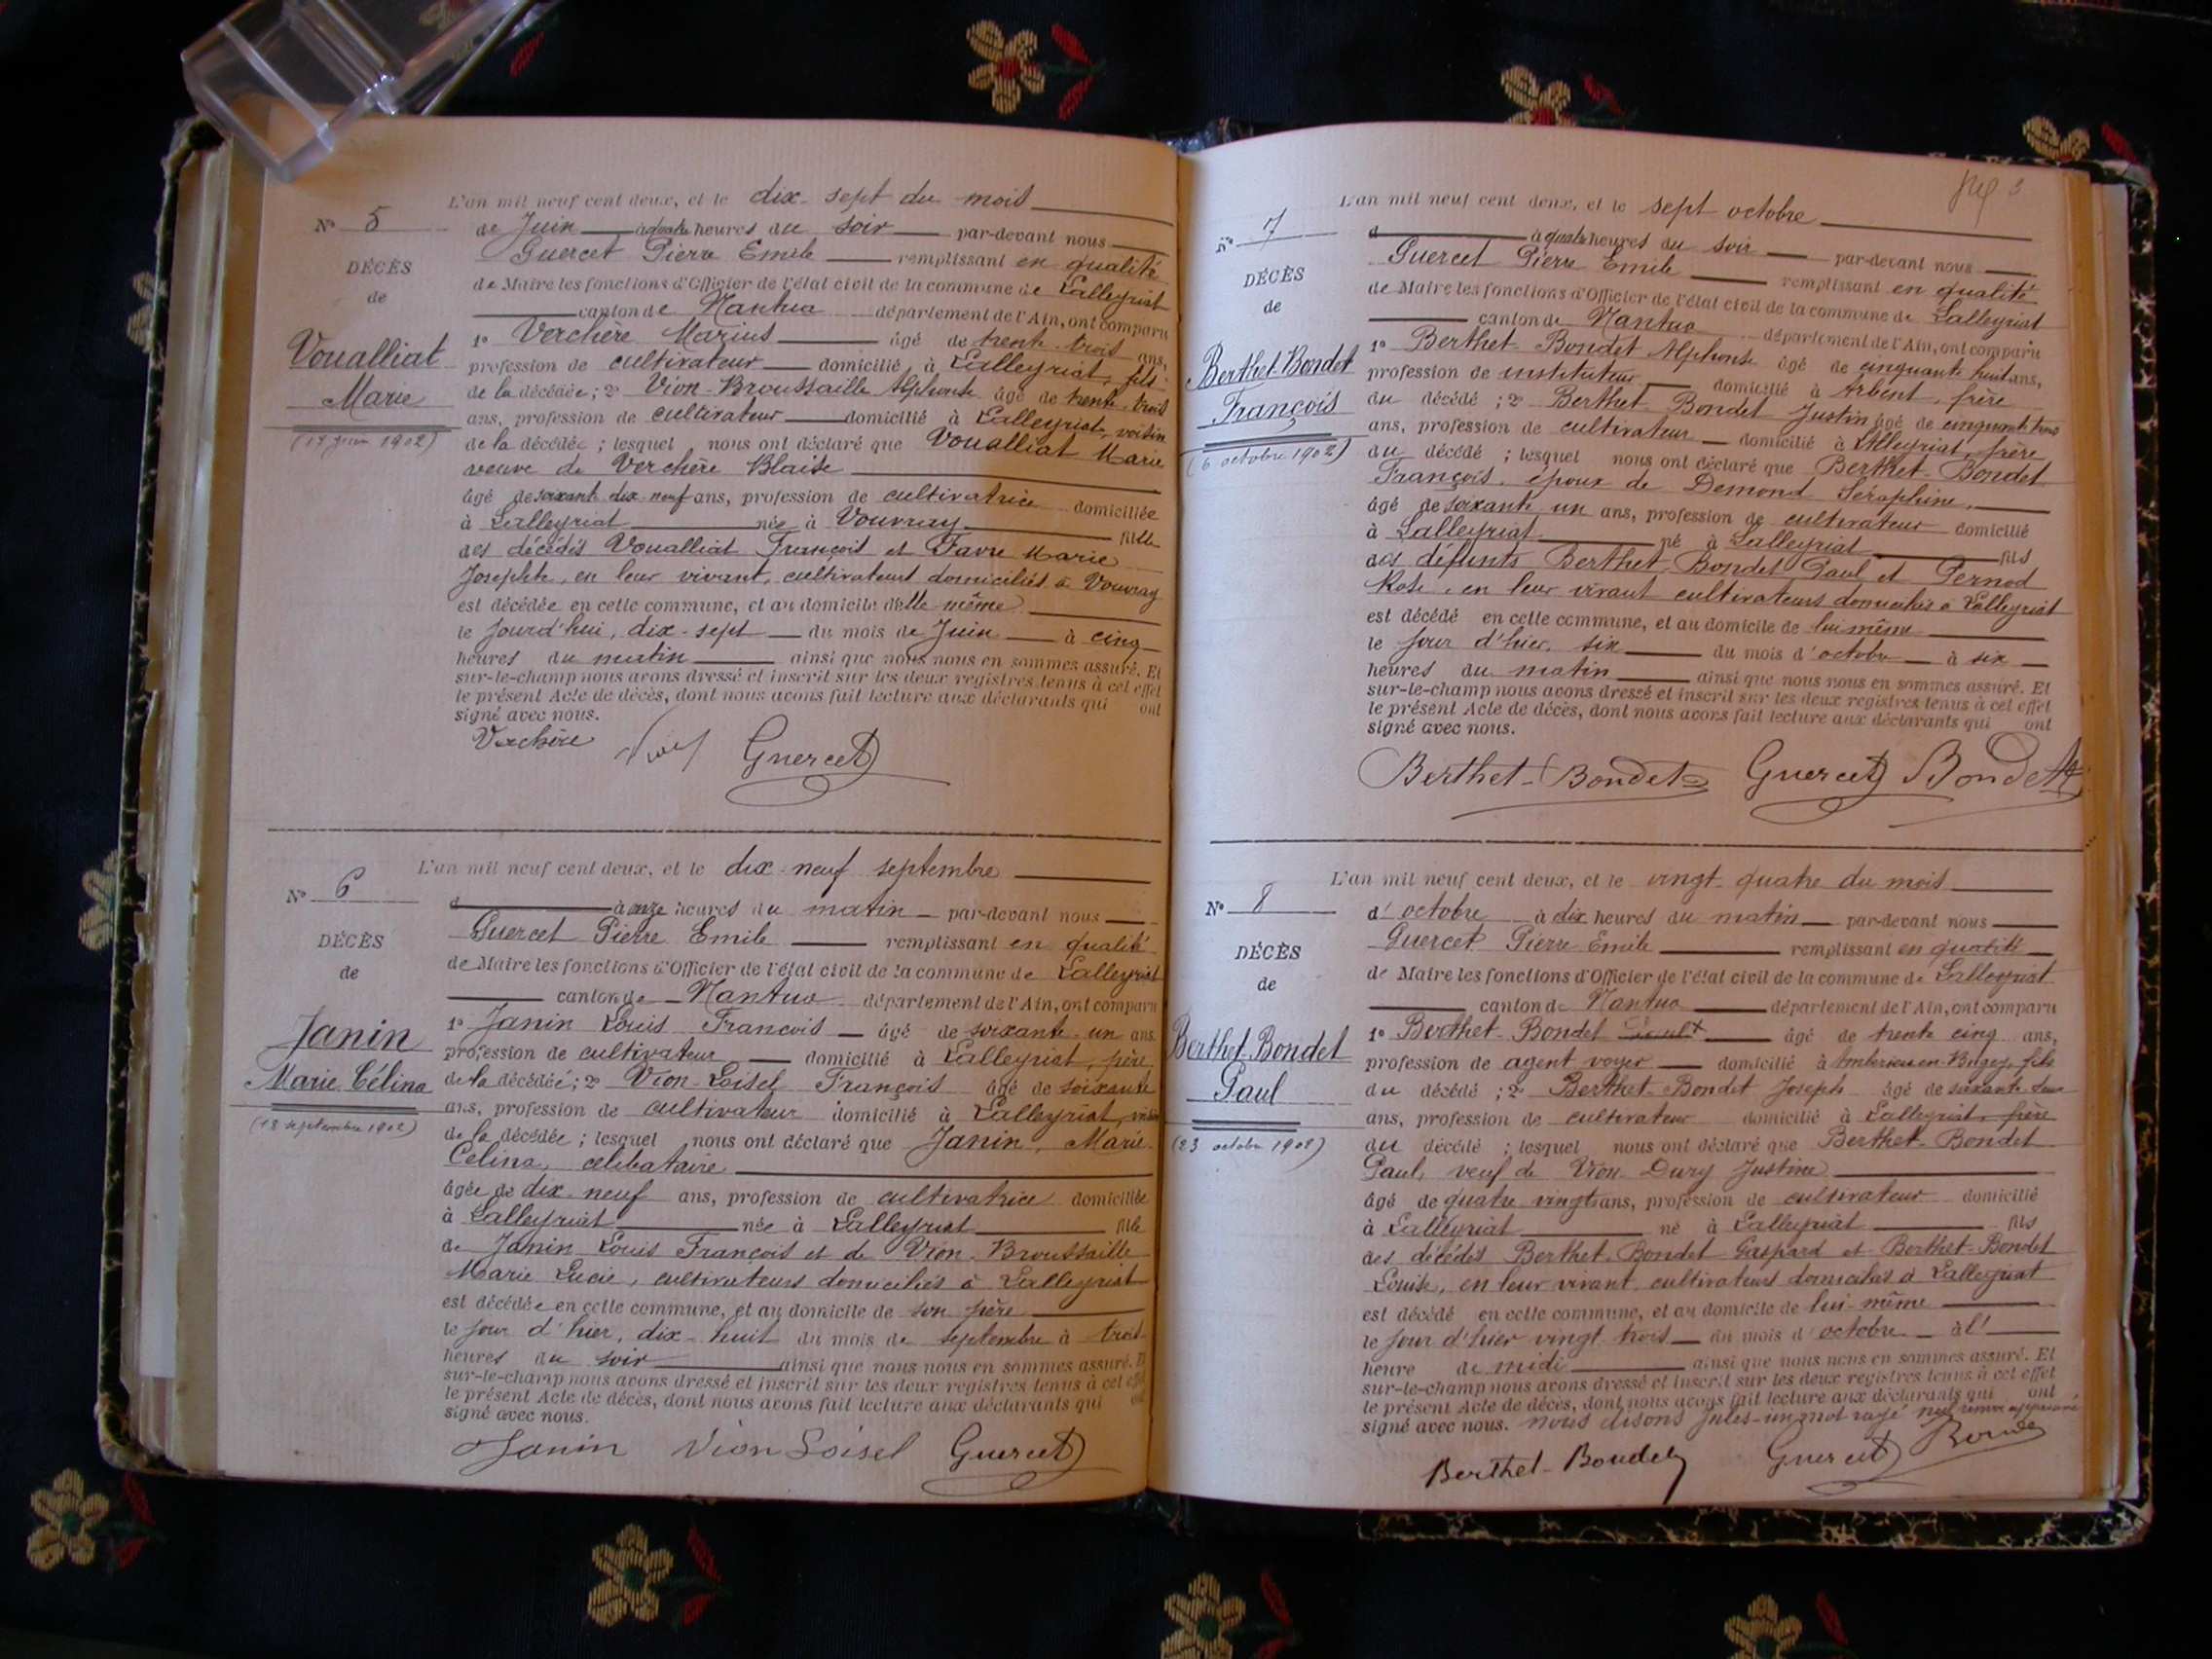 L'an mil neuf cent deux, et le dix-sept du mois
N° 5
de Juin à heures du soir par-devant nous
Guercet Pierre Emile remplissant en qualité
DÉCÈS
de Maire les fonctions d'Officier de l'état civil de la commune de Lalleyriat
de
canton de Nantua département de l'Ain, ont comparu
Voualliat
1° Verchère Marius âgé de trente-trois ans,
profession de cultivateur domicilié à Lalleyriat, fils
Marie
de la décédée ; 2° Vion-Broussaille Alphonse âgé de trente-trois
ans, profession de cultivateur domicilié à Lalleyriat, voisin
(17 juin 1902)
de la décédée ; lesquel nous ont déclaré que Voualliat Marie
veuve de Verchère Blaise
âgé de soixante-dix-neuf ans, profession de cultivatrice domiciliée
à Lalleyriat née à Vouvray fille
des décédés Voualliat François et Favre Marie
Josephte, en leur vivant, cultivateurs domiciliés à Vouvray
est décédée en cette commune, et au domicile d'elle-même
le jourd'hui, dix-sept du mois de Juin à cinq
heures du matin ainsi que nous nous en sommes assuré. Et
sur-le-champ nous avons dressé et inscrit sur les deux registres tenus à cet effet
le présent Acte de décès, dont nous avons fait lecture aux déclarants qui ont
signé avec nous.
Verchère Guercet
L'an mil neuf cent deux, et le dix-neuf septembre
N° 6
d à onze heures du matin par-devant nous
Guercet Pierre Emile remplissant en qualité
DÉCÈS
de Maire les fonctions d'Officier de l'état civil de la commune de Lalleyriat
de
canton de Nantua département de l'Ain, ont comparu
Janin
1° Janin Louis François âgé de soixante-un ans
profession de cultivateur domicilié à Lalleyriat, père
Marie Célina
de la décédée ; 2° Vion-Loisel François âgé de soixante
ans, profession de cultivateur domicilié à Lalleyriat, voisin
(18 septembre 1902)
de la décédée ; lesquel nous ont déclaré que Janin, Marie
Celina, célibataire
âgée de dix-neuf ans, profession de cultivatrice domiciliée
à Lalleyriat née à Lalleyriat fille
de Janin Louis François et de Vion-Broussaille
Marie Lucie, cultivateurs domiciliés à Lalleyriat
est décédée en cette commune, et au domicile de son père
le jour d'hier, dix-huit du mois de septembre à trois
heures du soir ainsi que nous nous en sommes assuré. Et
sur-le-champ nous avons dressé et inscrit sur les deux registres tenus à cet effet
le présent Acte de décès, dont nous avons fait lecture aux déclarants qui ont
signé avec nous.
Janin Vion Loisel Guercet
L'an mil neuf cent deux, et le sept octobre
N° 7
d à quatre heures du soir par-devant nous
Guercet Pierre Emile remplissant en qualité
DÉCÈS
de Maire les fonctions d'Officier de l'état civil de la commune de Lalleyriat
de
canton de Nantua département de l'Ain, ont comparu
Berthet-Bondet
1° Berthet-Bondet Alphonse âgé de cinquante huit ans,
profession de instituteur domicilié à Arbent, frère
François
du décédé ; 2° Berthet-Bondet Justin âgé de cinquante trois
ans, profession de cultivateur domicilié à Lalleyriat, frère
(6 octobre 1902)
du décédé ; lesquel nous ont déclaré que Berthet-Bondet
François, époux de Demond Séraphine,
âgé de soixante un ans, profession de cultivateur domicilié
à Lalleyriat né à Lalleyriat fils
des défunts Berthet-Bondet Paul et Pernod
Rose, en leur vivant cultivateurs domiciliés à Lalleyriat
est décédé en cette commune, et au domicile de lui même
le jour d'hier, six du mois d'octobre à six
heures du matin ainsi que nous nous en sommes assuré. Et
sur-le-champ nous avons dressé et inscrit sur les deux registres tenus à cet effet
le présent Acte de décès, dont nous avons fait lecture aux déclarants qui ont
signé avec nous.
Berthet-Bondet Guercet Bondet
L'an mil neuf cent deux, et le vingt-quatre du mois
N° 8
d'octobre à dix heures du matin par-devant nous
Guercet Pierre Emile remplissant en qualité
DÉCÈS
de Maire les fonctions d'Officier de l'état civil de la commune de Lalleyriat
de
canton de Nantua département de l'Ain, ont comparu
Berthet-Bondet
1° Berthet-Bondet âgé de trente cinq ans,
profession de agent voyer domicilié à Ambérieu-en-Bugey, fils
Paul
du décédé ; 2° Berthet-Bondet Joseph âgé de soixante
ans, profession de cultivateur domicilié à Lalleyriat, frère
(23 octobre 1902)
du décédé ; lesquel nous ont déclaré que Berthet-Bondet
Paul, veuf de Vion-Dury Justine
âgé de quatre-vingt ans, profession de cultivateur domicilié
à Lalleyriat né à Lalleyriat fils
des décédés Berthet-Bondet Gaspard et Berthet-Bondet
Louise, en leur vivant cultivateurs domiciliés à Lalleyriat
est décédé en cette commune, et au domicile de lui-même
le jour d'hier vingt-trois du mois d'octobre à l'
heure de midi ainsi que nous nous en sommes assuré. Et
sur-le-champ nous avons dressé et inscrit sur les deux registres tenus à cet effet
le présent Acte de décès, dont nous avons fait lecture aux déclarants qui ont
signé avec nous. nous disons Jules - un mot rayé nul
Berthet-Bondet Guercet